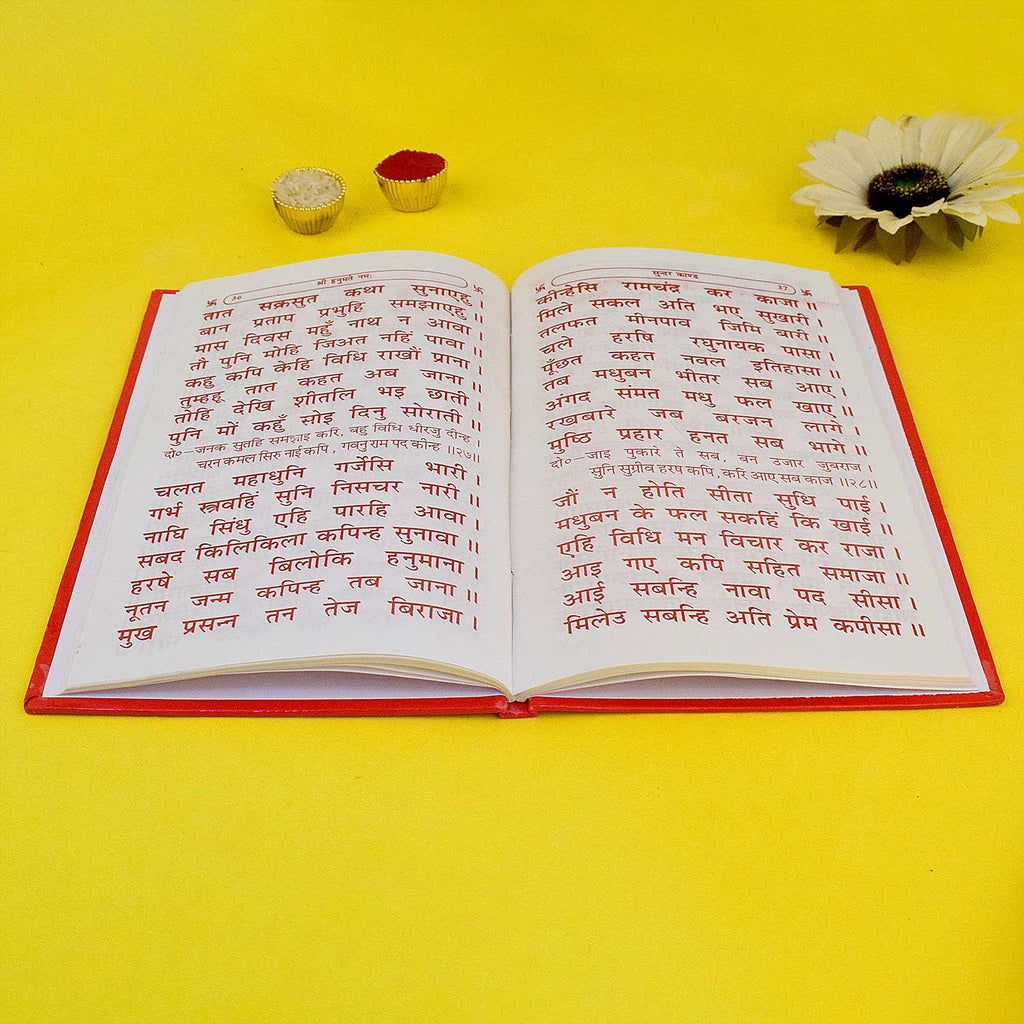 36 श्री हनुमते नमः
तात सक्रसुत कथा सुनाएहु ।
बान प्रताप प्रभुहि समझाएहु ॥
मास दिवस महुँ नाथ न आवा ।
तौ पुनि मोहि जिअत नहिं पावा ॥
कहु कपि केहि विधि राखौं प्राना ।
तुम्हहू तात कहत अब जाना ॥
तोहि देखि शीतलि भइ छाती ।
पुनि मों कहुँ सोइ दिनु सोराती ॥
दो०—जनक सुतहि समझाइ करि, बहु विधि धीरजु दीन्ह ।
चरन कमल सिरु नाई कपि, गवनु राम पद कीन्ह ॥२७॥
चलत महाधुनि गर्जेसि भारी ।
गर्भ स्त्रवहिं सुनि निसचर नारी ॥
नाघि सिंधु एहि पारहि आवा ।
सबद किलिकिला कपिन्ह सुनावा ॥
हरषे सब बिलोकि हनुमाना ।
नूतन जन्म कपिन्ह तब जाना ॥
मुख प्रसन्न तन तेज बिराजा ।
सुन्दर काण्ड 37
कीन्हेसि रामचंद्र कर काजा ॥
मिले सकल अति भए सुखारी ।
तलफत मीनपाव जिमि बारी ॥
चले हरषि रघुनायक पासा ।
पूँछत कहत नवल इतिहासा ॥
तब मधुबन भीतर सब आए ।
अंगद संमत मधु फल खाए ॥
रखबारे जब बरजन लागे ।
मुष्ठि प्रहार हनत सब भागे ॥
दो०—जाइ पुकारे ते सब, बन उजार जुबराज ।
सुनि सुग्रीव हरष कपि, करि आए सब काज ॥२८॥
जौं न होति सीता सुधि पाई ।
मधुबन के फल सकहिं कि खाई ॥
एहि विधि मन विचार कर राजा ।
आइ गए कपि सहित समाजा ॥
आई सबन्हि नावा पद सीसा ।
मिलेउ सबन्हि अति प्रेम कपीसा ॥